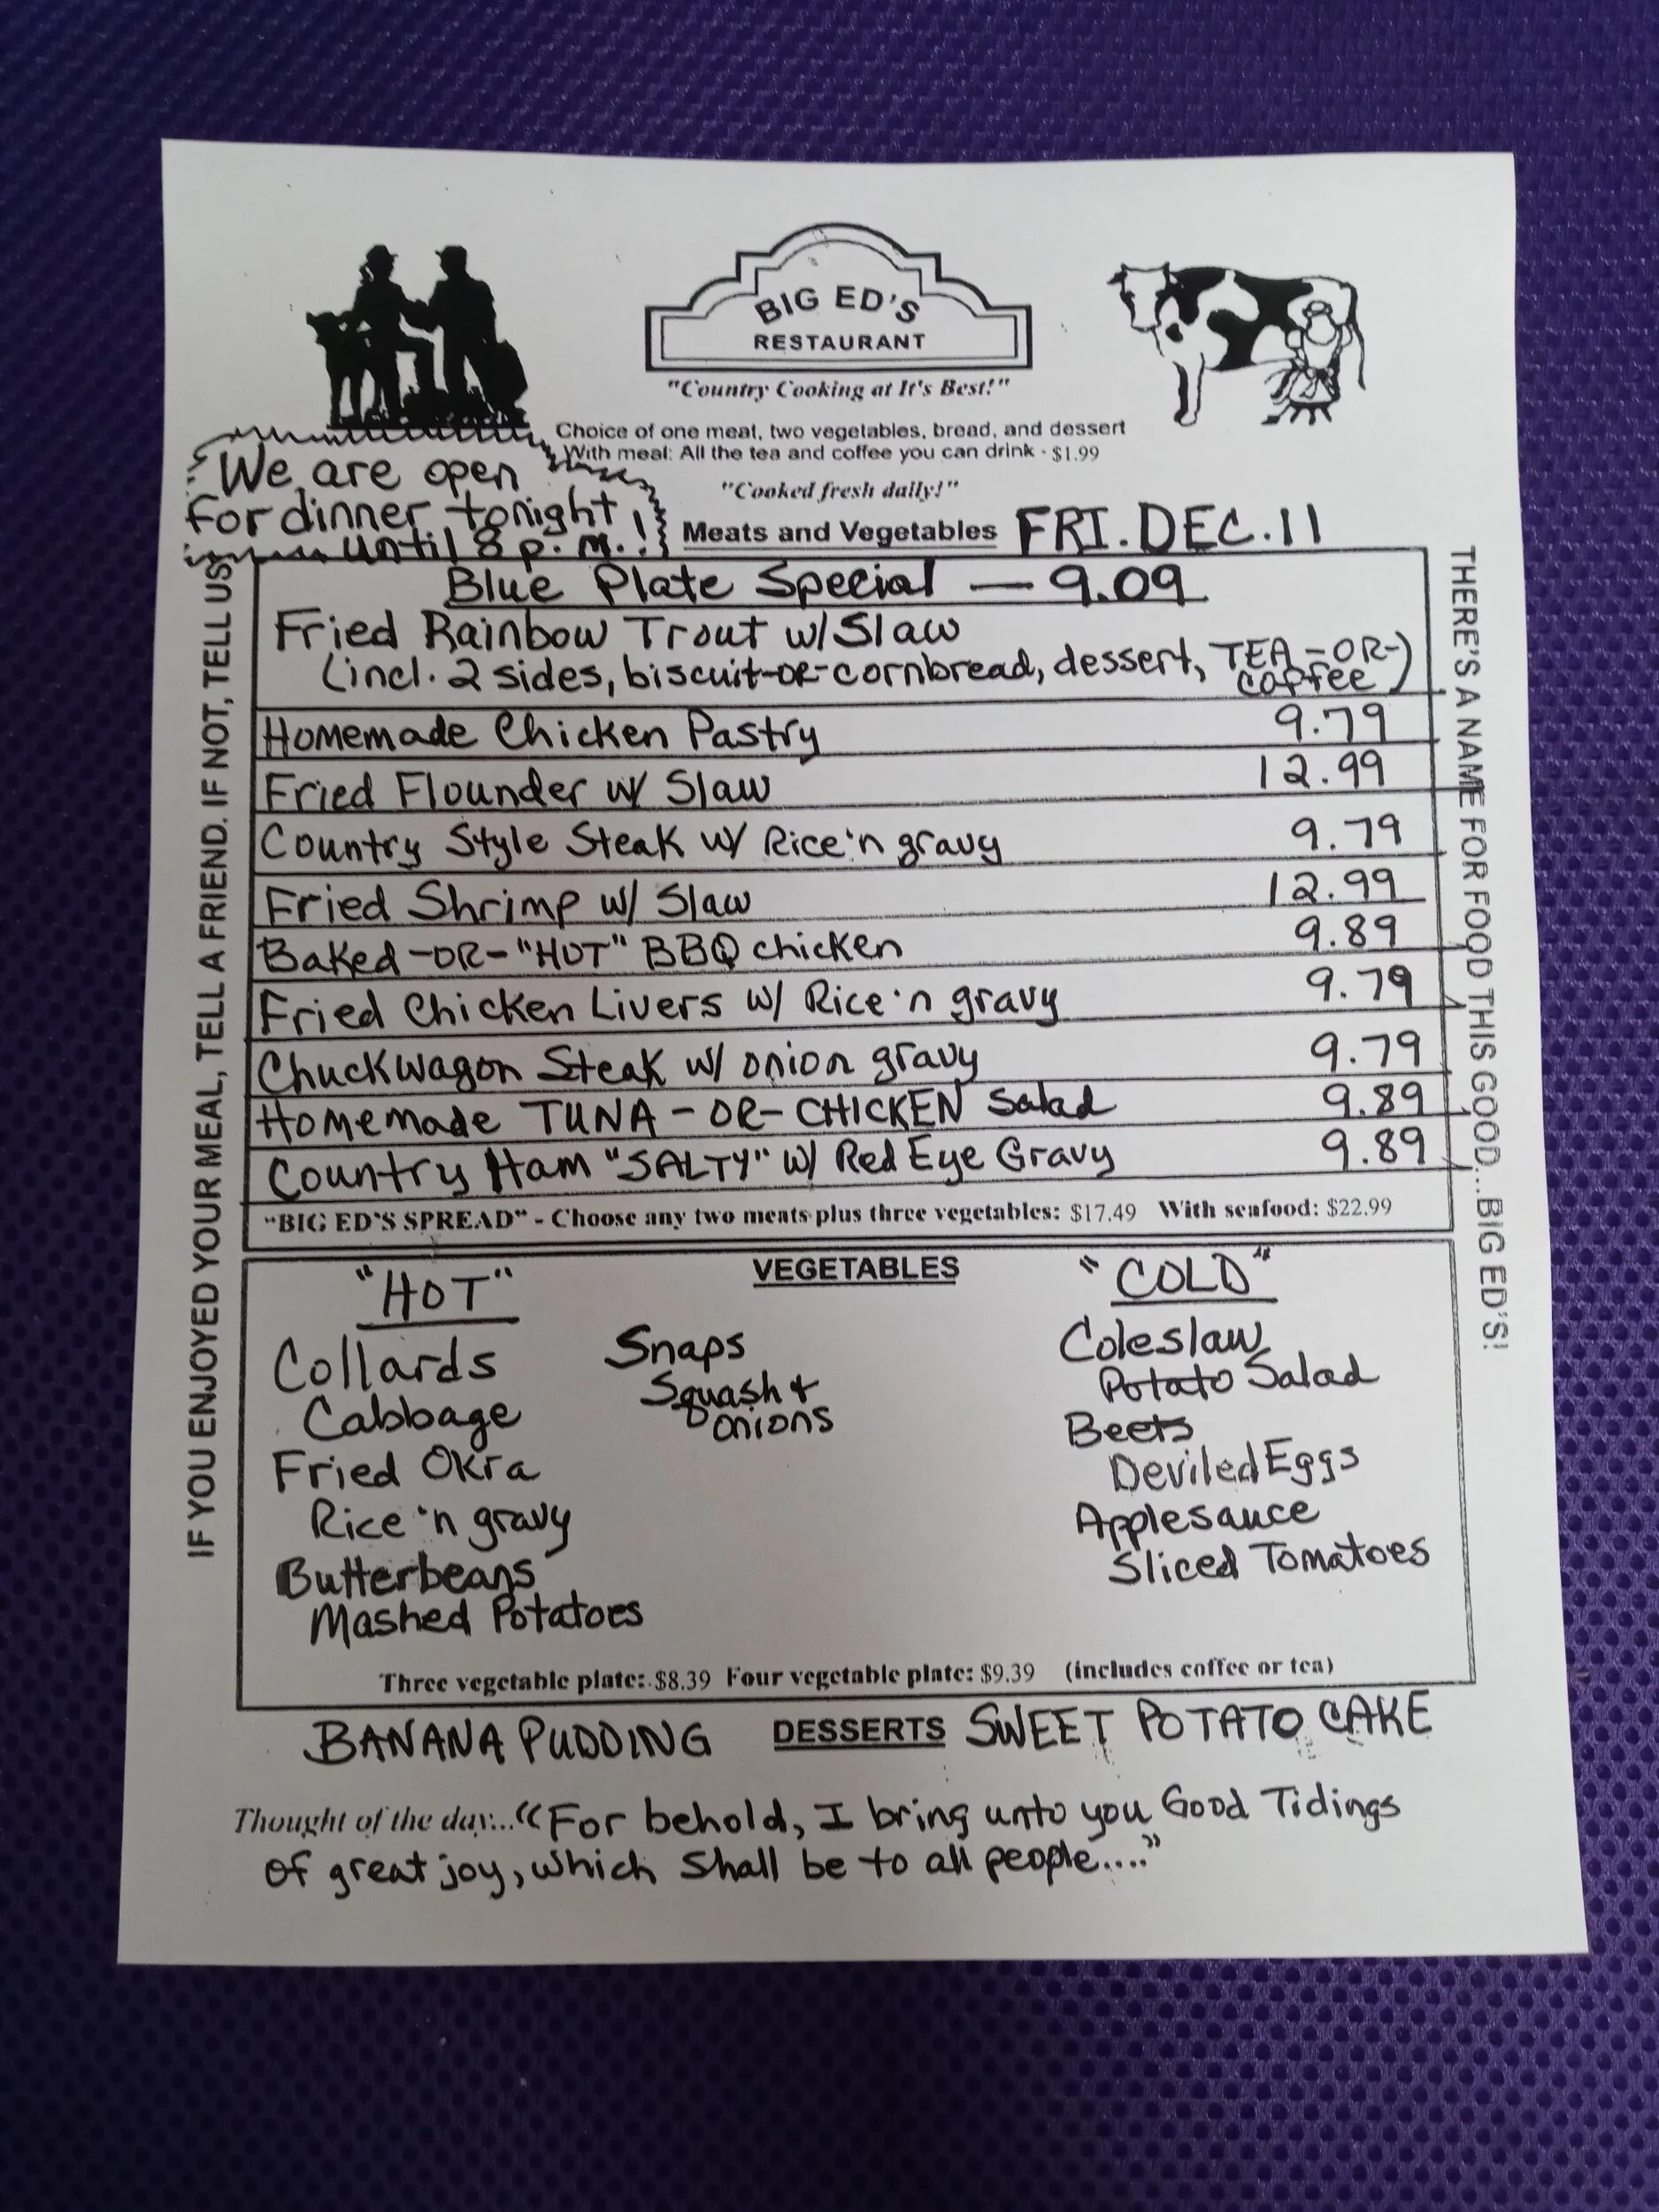 BIG ED'S
RESTAURANT
"Country Cooking at It's Best!"
Choice of one meat, two vegetables, bread, and dessert
With meal: All the tea and coffee you can drink - $1.99
"Cooked fresh daily!"
We are open
for dinner tonight
until 8 p.m.!
Meats and Vegetables FRI. DEC. 11
Blue Plate Special — 9.09
Fried Rainbow Trout w/ Slaw
(incl. 2 sides, biscuit-or-cornbread, dessert, TEA-OR-
coffee)
Homemade Chicken Pastry 9.79
Fried Flounder w/ Slaw 12.99
Country Style Steak w/ Rice 'n gravy 9.79
Fried Shrimp w/ Slaw 12.99
Baked -OR- "HOT" BBQ chicken 9.89
Fried Chicken Livers w/ Rice 'n gravy 9.79
Chuckwagon Steak w/ onion gravy 9.79
Homemade TUNA -OR- CHICKEN Salad 9.89
Country Ham "SALTY" w/ Red Eye Gravy 9.89
"BIG ED'S SPREAD" - Choose any two meats plus three vegetables: $17.49 With seafood: $22.99
VEGETABLES
"HOT"
Collards
Cabbage
Fried Okra
Rice 'n gravy
Butterbeans
Mashed Potatoes
Snaps
Squash +
onions
"COLD"
Coleslaw
Potato Salad
Beets
Deviled Eggs
Applesauce
Sliced Tomatoes
Three vegetable plate: $8.39 Four vegetable plate: $9.39 (includes coffee or tea)
BANANA PUDDING DESSERTS SWEET POTATO CAKE
Thought of the day..."For behold, I bring unto you Good Tidings
of great joy, which shall be to all people...."
IF YOU ENJOYED YOUR MEAL, TELL A FRIEND. IF NOT, TELL US!
THERE'S A NAME FOR FOOD THIS GOOD...BIG ED'S!